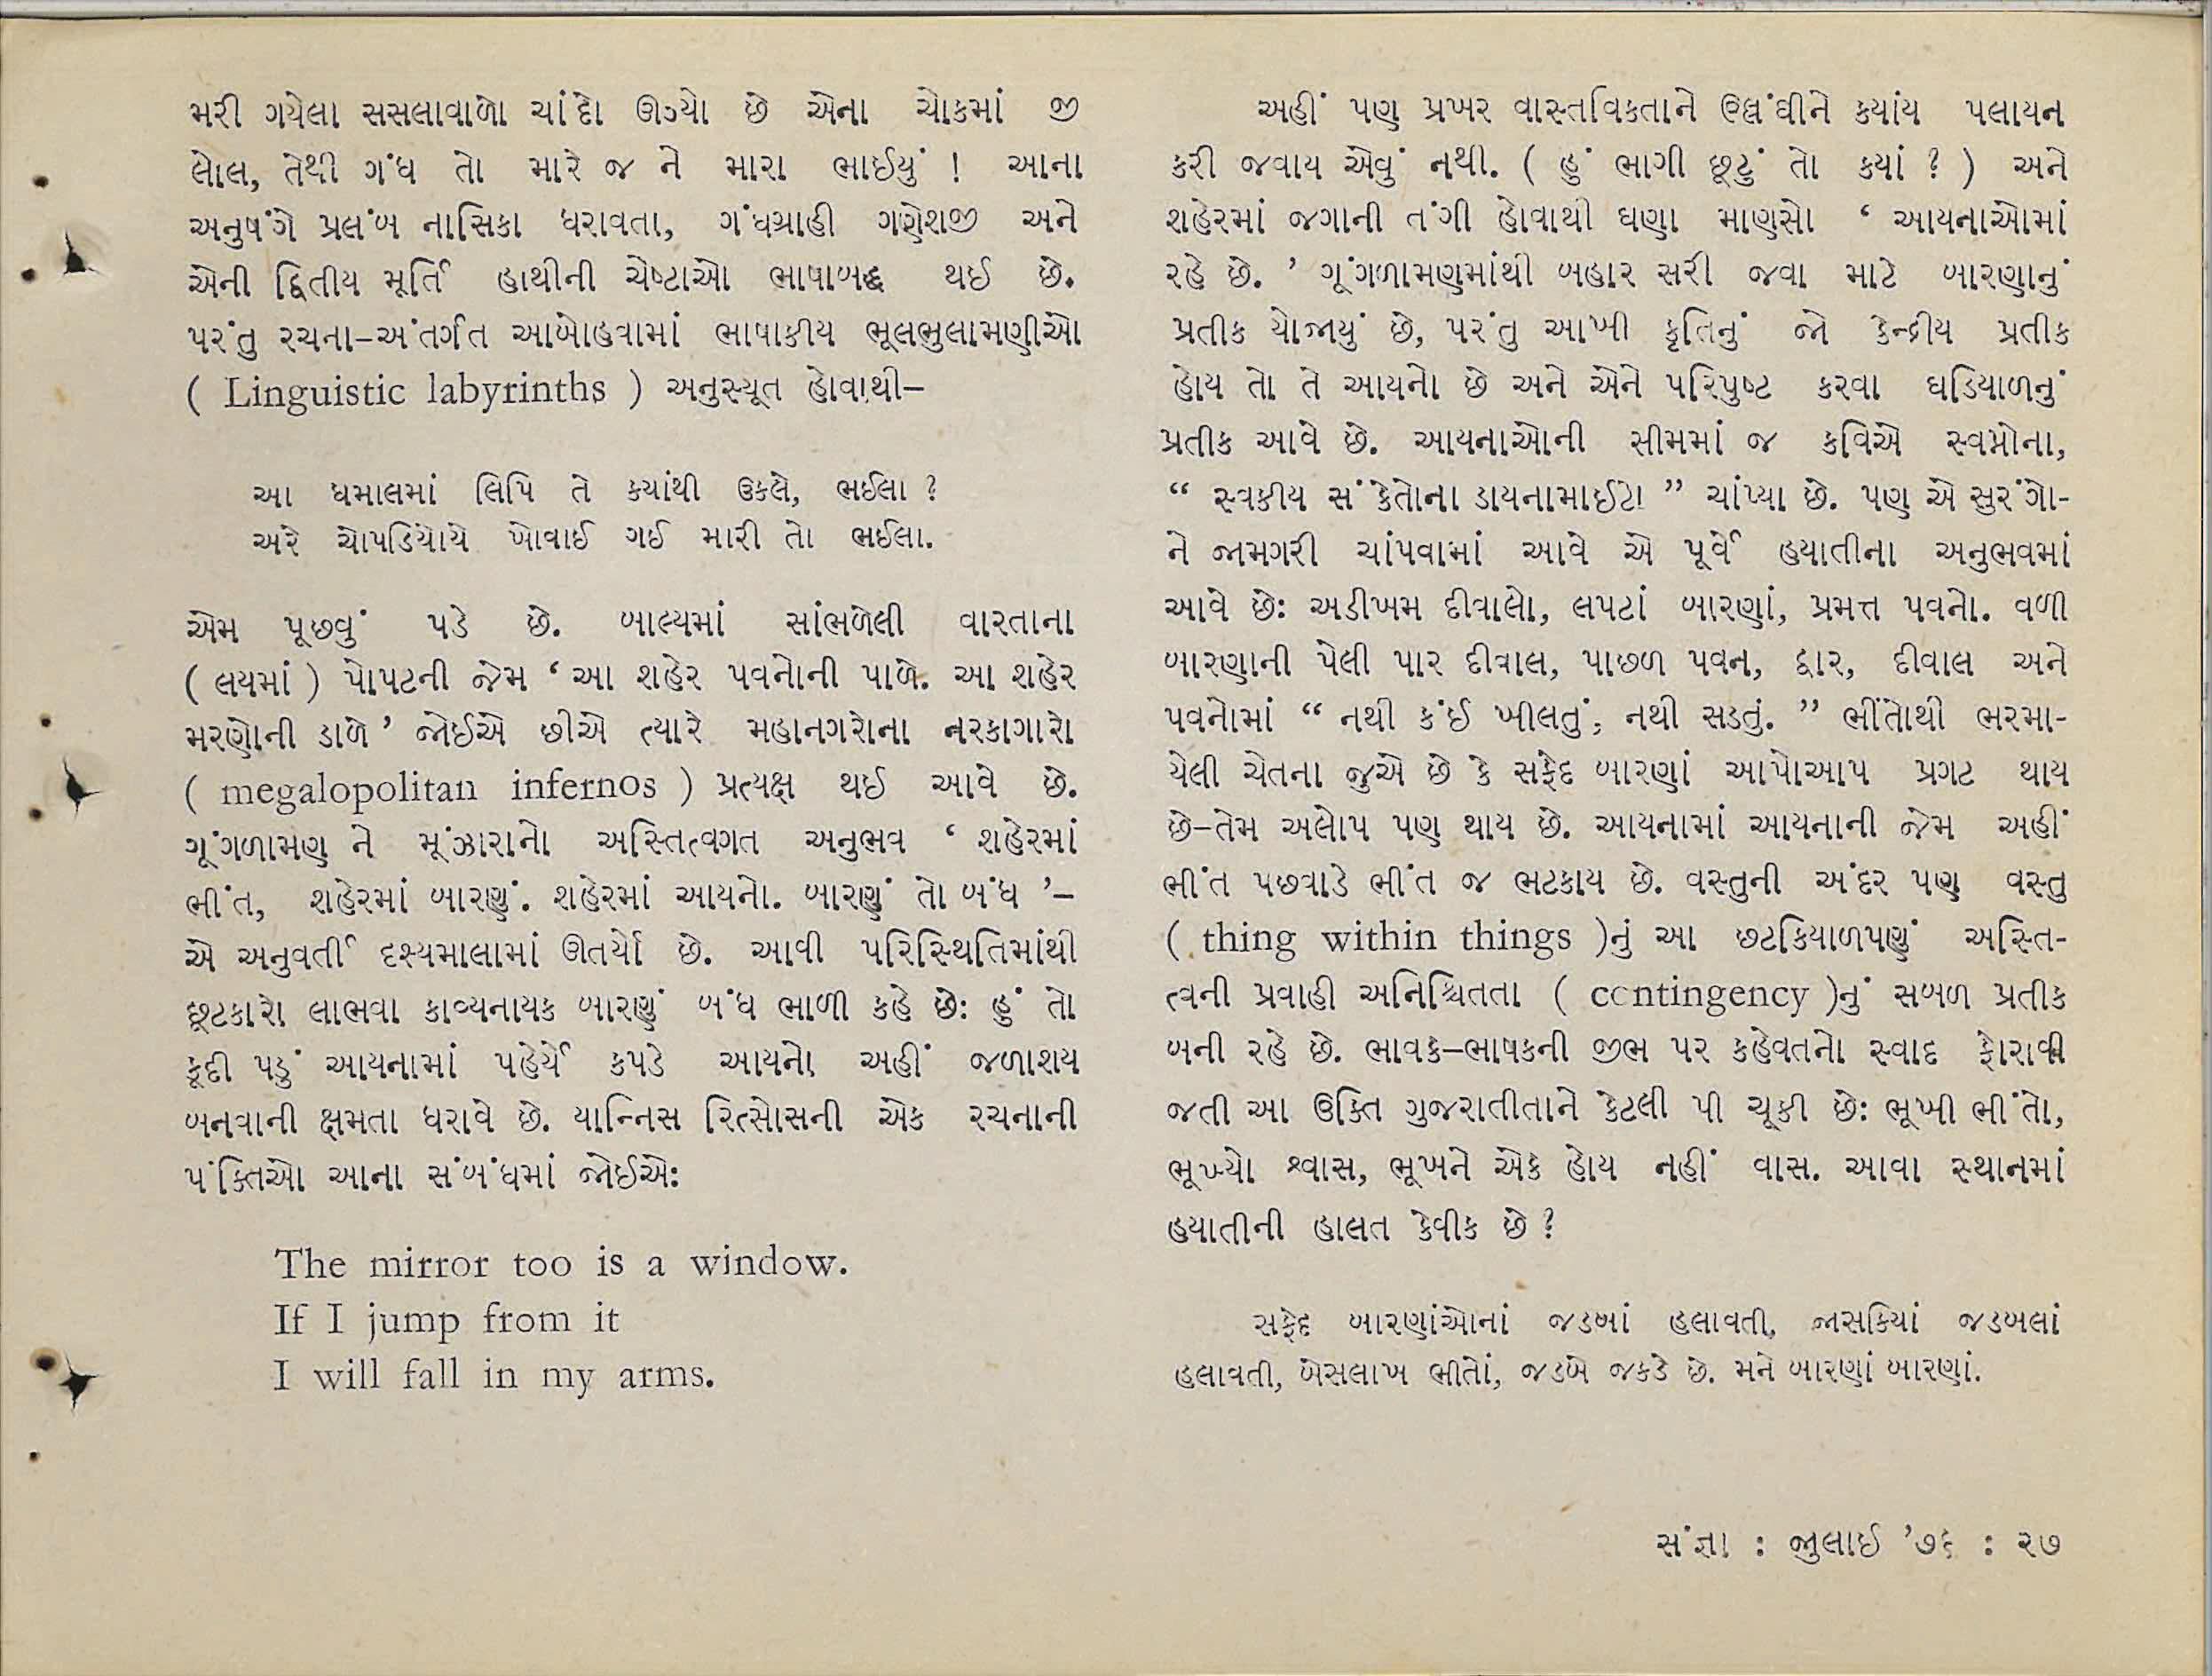 મરી ગયેલા સસલાવાળો ચાંદો ઊગ્યો છે એના ચોકમાં જી
લોલ, તેથી ગંધ તો મારે જ ને મારા ભાઈયું ! આના
અનુષંગે પ્રલંબ નાસિકા ધરાવતા, ગંધગ્રાહી ગણેશજી અને
એની દ્વિતીય મૂર્તિ હાથીની ચેષ્ટાઓ ભાષાબદ્ધ થઈ છે.
પરંતુ રચના–અંતર્ગત આબોહવામાં ભાષાકીય ભૂલભુલામણીઓ
( Linguistic labyrinths ) અનુસ્યૂત હોવાથી–
આ ધમાલમાં લિપિ તે કયાંથી ઉકલે, ભઈલા ?
અરે ચોપડિયોયે ખોવાઈ ગઈ મારી તો ભઈલા.
એમ પૂછવું પડે છે. બાલ્યમાં સાંભળેલી વારતાના
( લયમાં ) પોપટની જેમ ‘ આ શહેર પવનોની પાળે. આ શહેર
મરણોની ડાળે ’ જોઈએ છીએ ત્યારે મહાનગરોના નરકાગારો
( megalopolitan infernos ) પ્રત્યક્ષ થઈ આવે છે.
ગૂંગળામણ ને મૂંઝારાનો અસ્તિત્વગત અનુભવ ‘ શહેરમાં
ભીંત, શહેરમાં બારણું. શહેરમાં આયનો. બારણું તો બંધ ’–
એ અનુવર્તી દૃશ્યમાલામાં ઊતર્યો છે. આવી પરિસ્થિતિમાંથી
છૂટકારો લાભવા કાવ્યનાયક બારણું બંધ ભાળી કહે છેઃ હું તો
કૂદી પડું આયનામાં પહેર્યે કપડે આયનો અહીં જળાશય
બનવાની ક્ષમતા ધરાવે છે. યાન્નિસ રિત્સોસની એક રચનાની
પંક્તિઓ આના સંબંધમાં જોઈએઃ
The mirror too is a window.
If I jump from it
I will fall in my arms.
અહીં પણ પ્રખર વાસ્તવિકતાને ઉલ્લંઘીને કયાંય પલાયન
કરી જવાય એવું નથી. ( હું ભાગી છૂટું તો કયાં ? ) અને
શહેરમાં જગાની તંગી હોવાથી ઘણા માણસો ‘ આયનાઓમાં
રહે છે. ’ ગૂંગળામણમાંથી બહાર સરી જવા માટે બારણાનું
પ્રતીક યોજાયું છે, પરંતુ આખી કૃતિનું જો કેન્દ્રીય પ્રતીક
હોય તો તે આયનો છે અને એને પરિપુષ્ટ કરવા ઘડિયાળનું
પ્રતીક આવે છે. આયનાઓની સીમમાં જ કવિએ સ્વપ્નોના,
“ સ્વકીય સંકેતોના ડાયનામાઈટો ” ચાંપ્યા છે. પણ એ સુરંગો-
ને જામગરી ચાંપવામાં આવે એ પૂર્વે હયાતીના અનુભવમાં
આવે છેઃ અડીખમ દીવાલો, લપટાં બારણાં, પ્રમત્ત પવનો. વળી
બારણાની પેલી પાર દીવાલ, પાછળ પવન, દ્વાર, દીવાલ અને
પવનોમાં “ નથી કંઈ ખીલતું; નથી સડતું. ” ભીંતોથી ભરમા-
યેલી ચેતના જુએ છે કે સફેદ બારણાં આપોઆપ પ્રગટ થાય
છે–તેમ અલોપ પણ થાય છે. આયનામાં આયનાની જેમ અહીં
ભીંત પછવાડે ભીંત જ ભટકાય છે. વસ્તુની અંદર પણ વસ્તુ
( thing within things )નું આ છટકિયાળપણું અસ્તિ-
ત્વની પ્રવાહી અનિશ્ચિતતા ( contingency )નું સબળ પ્રતીક
બની રહે છે. ભાવક–ભાષકની જીભ પર કહેવતનો સ્વાદ ફોરાવી
જતી આ ઉક્તિ ગુજરાતીતાને કેટલી પી ચૂકી છેઃ ભૂખી ભીંતો,
ભૂખ્યો શ્વાસ, ભૂખને એકે હોય નહીં વાસ. આવા સ્થાનમાં
હયાતીની હાલત કેવીક છે ?
સફેદ બારણાંઓનાં જડબાં હલાવતી, જાસકિયાં જડબલાં
હલાવતી, બેસલાખ ભીતોં, જડબે જકડે છે. મને બારણાં બારણાં.
સંજ્ઞા : જુલાઈ ’૭૬ : ૨૭